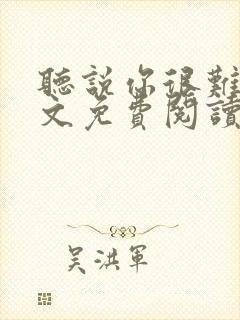 聽說你很難
文免費閱讀
吳洪軍